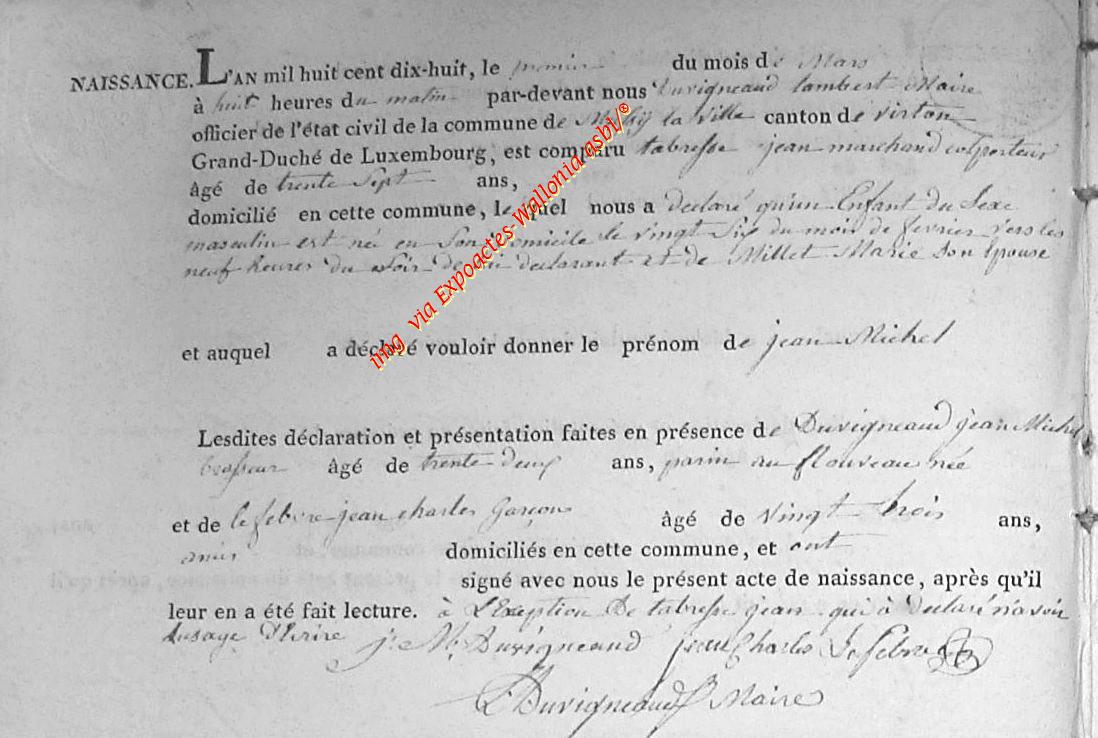 NAISSANCE. L'AN mil huit cent dix-huit, le premier du mois de Mars
à huit heures du matin par-devant nous Duvigneaud Lambert Maire
officier de l'état civil de la commune de la Ville canton de Virton
Grand-Duché de Luxembourg, est comparu tabresse jean marchand colporteur
âgé de trente Sept ans,
domicilié en cette commune, lequel nous a declaré qu'un Enfant du Sexe
masculin est né en Son domicile le vingt Six du mois de fevrier vers les
neuf heures du Soir de lui declarant et de Millet Marie Son Epouse
et auquel a déclaré vouloir donner le prénom de jean Michel
Lesdites déclaration et présentation faites en présence de Duvigneaud jean Michel
brasseur âgé de trente deux ans, parin au Nouveau née
et de lefebvre jean charles Garçon âgé de Vingt trois ans,
amis domiciliés en cette commune, et ont
signé avec nous le présent acte de naissance, après qu'il
leur en a été fait lecture. à L'Exeption De tabresse jean qui à Declaré n'avoir
Lusage D'Ecrire J. M. Duvigneaud jean Charles Lefebvre
L Duvigneaud Maire
img via Expoactes-Wallonia asbl/®